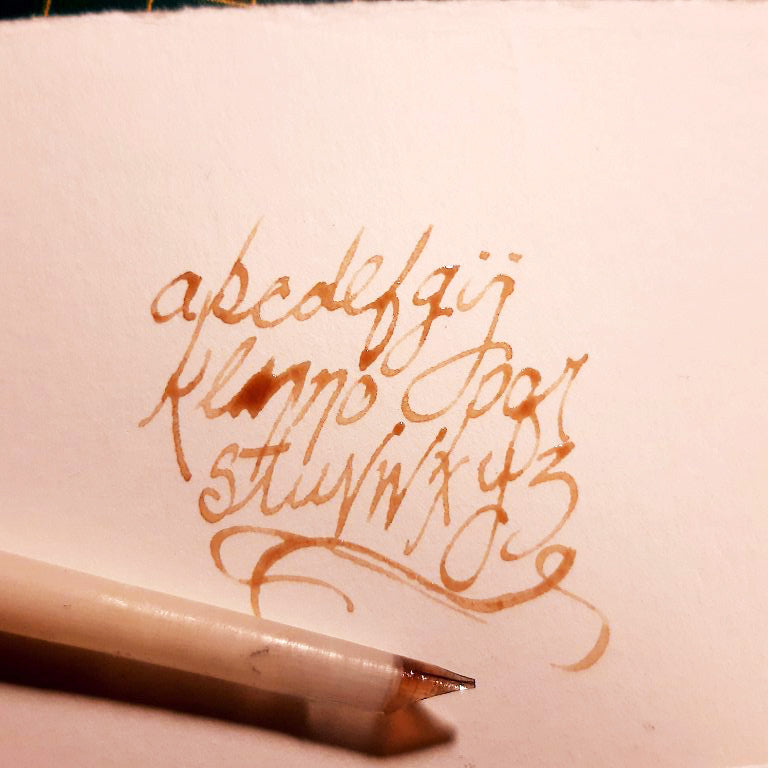 abcdefgij
klmnopqr
stuvwxyz